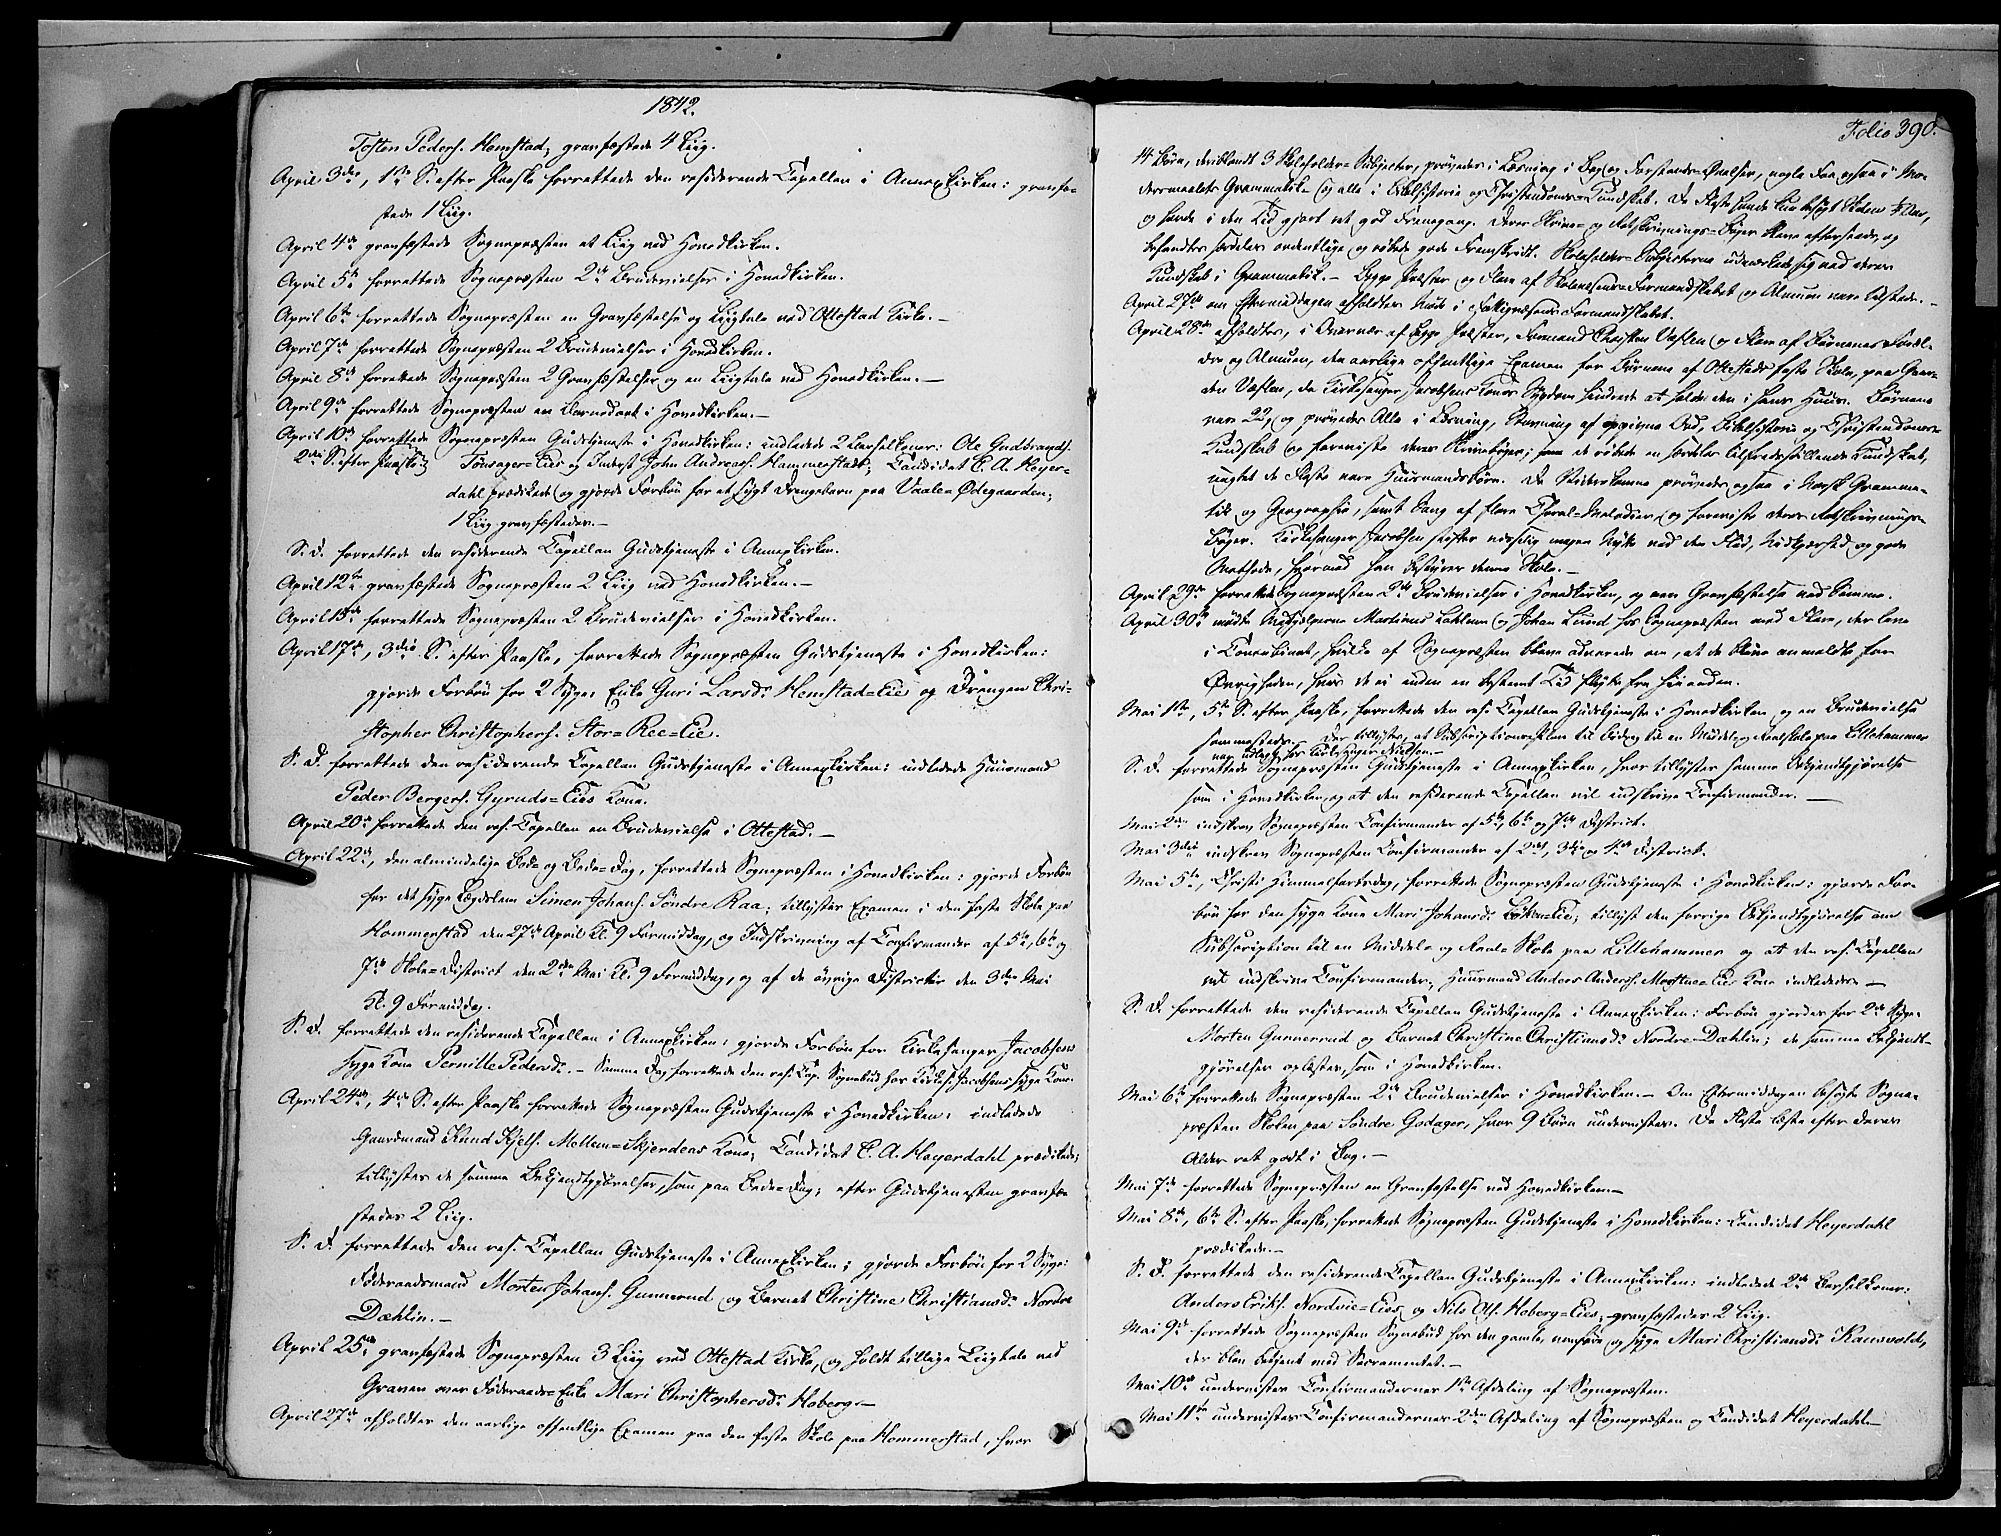 1842.
Tosten Peders. Hemstad; gravfæstede 4 Liig.
April 3die, 1ste S. efter Paaske forrettede den residerende Capellan i Annexkirken: gravfæ-
stede 1 Liig.
April 4de gravfæstede Sognepræsten et Liig ved Hovedkirken.
April 5te forrettede Sognepræsten 2de Brudevielser i Hovedkirken.
April 6te forrettede Sognepræsten en Gravfæstelse og Liigtale ved Ottestad Kirke.—
April 7de forrettede Sognepræsten 2 Brudevielser i Hovedkirken.
April 8de forrettede Sognepræsten 2 Gravfæstelser og en Liigtale ved Hovedkirken.—
April 9de forrettede Sognepræsten en Barnedaab i Hovedkirken.—
April 10de forrettede Sognepræsten Gudstjeneste i Hovedkirken: indledede 2 Barselkoner: Ole Gudbrands.
2den S. efter Paaske Tønsager=Eies og Inderst John Andreas. Hammerstads; Candidat C. A. Heyer-
dahl prædikede og gjorde Forbøn for et sygt Drengebarn paa Vaale=Ødegaarden;
1 Liig gravfæstedes.—
S. D. forrettede den residerende Capellan Gudstjeneste i Annexkirken.
April 12te gravfæstede Sognepræsten 2 Liig ved Hovedkirken.—
April 15de forrettede Sognepræsten 2 Brudevielser i Hovedkirken.
April 17de, 3die S. efter Paaske, forrettede Sognepræsten Gudstjeneste i Hovedkirken:
gjorde Forbøn for 2 Syge: Enke Guri Larsdr. Hemstad=Eie og Drengen Chri-
stopher Christophers. Stor=Ree=Eie.
S. D. forrettede den residerende Capellan Gudstjeneste i Annexkirken: indledede Huusmand
Peder Bergers. Gyruds=Eies Kone.
April 20de forrettede den res. Capellan en Brudevielse i Ottestad.—
April 22de, den almindelige Bods og Bede=Dag, forrettede Sognepræsten i Hovedkirken: gjorde Forbøn
for det syge Lægdslem Simen Johans. Søndre Raa; tillystes Examen i den faste Skole paa
Hammerstad den 27de April Kl. 9 Formiddag, og Indskrivning af Confirmander af 5te, 6te og
7de Skole=District den 2den Mai Kl. 9 Formiddag, og af de øvrige Districter den 3die Mai
Kl. 9 Formiddag.
S. D. forrettede den residerende Capellan i Annexkirken: gjorde Forbøn for Kirkesanger Jacobsens
syge Kone Pernille Pedersdr.— Samme Dag forrettede den res. Cap. Sognebud hos Kirkes. Jacobsens syge Kone.
April 24de, 4de S. efter Paaske forrettede Sognepræsten Gudstjeneste i Hovedkirken: indledede
Gaardmand Knud Kjels. Mellem=Skjerdens Kone; Candidat C. A. Heyerdahl prædikede;
tillystes de samme Bekjendtgjørelser, som paa Bede=Dag; efter Gudstjenesten gravfæ-
stedes 2 Liig.
S. D. forrettede den res. Capellan Gudstjeneste i Annexkirken; gjorde Forbøn for 2 Syge:
Føderaadsmand Morten Johans. Gunnerud og Barnet Christine Christiansdr. Nordre
Dæhlin.—
April 25de gravfæstede Sognepræsten 3 Liig ved Ottestad Kirke, og holdt tillige Liigtale ved
Graven over Føderaads=Enke Mari Christophersdr. Hoberg.—
April 27de afholdtes den aarlige offentlige Examen paa den faste Skole paa Hommerstad, hvor
Folio 390.
4 Børn, deriblandt 3 Skoleholder=Subjecter, prøvedes i Læsning i Bog og Forstands=Øvelser, nogle Faa ogsaa i Mo-
dersmaalets Grammatik og alle i Bibelhistorie og Christendoms=Kundskab. De fleste havde kun besøgt Skolen ½ Aar,
og havde i den Tid gjort ret god Fremgang. Deres Skrive= og Retskrivnings=Bøger bleve efterseede, og
befandtes særdeles ordentlige og røbede gode Fremskridt. Skoleholder=Subjecterne udmærkede sig ved deres
Kundskab i Grammatik.— Begge Præster og Flere af Skolevæsens=Formandskabet og Almuen vare tilstede.—
April 27de om Eftermiddagen afholdtes Møde i Fattigvæsens Formandskabet.
April 28de afholdtes, i Overvær af begge Præster, Formand Christen Væflen og Flere af Børnenes Foræl-
dre og Almuen, den aarlige offentlige Examen for Børnene af Ottestads faste Skole, paa Gaar-
den Væflen, da Kirkesanger Jacobsens Kones Sygdom hindrede at holde den i hans Huus. Børnene
vare 22, og prøvedes Alle i Læsning, Stavning af opgivne Ord, Bibelhistorie og Christendoms=
Kundskab og foreviste deres Skrivebøger; som de røbede en særdeles tilfredsstillende Kundskab,
uagtet de fleste vare Huusmandsbørn. De Viderekomne prøvedes ogsaa i Norsk Gramma-
tik og Geographie, samt Sang af flere Choral=Melodier og foreviste deres Retskrivnings=
Bøger. Kirkesanger Jacobsen stifter virkelig megen Nytte ved den Flid, Nidkjærhed og gode
Methode, hvormed han bestyrer denne Skole.—
April 29de forrettede Sognepræsten 2de Brudevielser i Hovedkirken, og een Gravfæstelse ved Samme.
April 30te mødte Medhjelperne Martinus Lahlum og Johan Lund hos Sognepræsten med Flere, der leve
i Concubinat, hvilke af Sognepræsten bleve advarede om, at de bleve anmeldte for
Øvrigheden, hvis de ei inden en bestemt Tid flytte fra hinanden.
Mai 1ste, 5te S. efter Paaske, forrettede den res. Capellan Gudstjeneste i Hovedkirken og en Brudevielse
sammesteds.— Der tillystes, at Subscriptionsplan til Bidrag til en Middel= og Realskole paa Lillehammer
var udlagt hos Kirkesanger Nielsen.—
S. D. forrettede Sognepræsten Gudstjeneste i Annexkirken, hvor tillystes samme Bekjendtgjørelse
som i Hovedkirken, og at den residerende Capellan vil indskrive Confirmander.—
Mai 2den indskrev Sognepræsten Confirmander af 5te, 6te og 7de District.
Mai 3die indskrev Sognepræsten Confirmander af 2det, 3die og 4de District.
Mai 5te, Christi Himmelfartsdag, forrettede Sognepræsten Gudstjeneste i Hovedkirken: gjorde For-
bøn for den syge Kone Mari Johansdr. Løken=Eie; tillyst den forrige Bekjendtgjørelse om
Subscription til en Middels og Real=Skole paa Lillehammer og at den res. Capellan
vil indskrive Confirmander; Huusmand Anders Anders. Mostue=Eies Kone indlededes.—
S. D. forrettede den residerende Capellan Gudstjeneste i Annexkirken: Forbøn gjordes for 2de Syge:
Morten Gunnerud og Barnet Christine Christiansdr. Nordre=Dæhlin; de samme Bekjendt-
gjørelser oplæstes, som i Hovedkirken.
Mai 6te forrettede Sognepræsten 2de Brudevielser i Hovedkirken.— Om Eftermiddagen besøgte Sogne-
præsten Skolen paa Søndre Godager, hvor 9 Børn undervistes. De fleste læste efter deres
Alder ret godt i Bog.—
Mai 7de forrettede Sognepræsten en Gravfæstelse ved Hovedkirken.—
Mai 8de, 6te S. efter Paaske, forrettede Sognepræsten Gudstjeneste i Hovedkirken: Candidat Heyerdahl
prædikede.—
S. D. forrettede den residerende Capellan Gudstjeneste i Annexkirken: indledede 2de Barselkoner:
Anders Eriks. Nordvie=Eies og Nils Ols. Hoberg=Eies; gravfæstedes 2 Liig.
Mai 9de forrettede Sognepræsten Sognebud hos den gamle, vanføre og syge Mari Christiansdr. Kauswold,
der blev betjent med Sacramentet.—
Mai 10de undervistes Confirmandernes 1ste Afdeling af Sognepræsten.
Mai 11te undervistes Confirmandernes 2den Afdeling af Sognepræsten og Candidat Heyerdahl.—